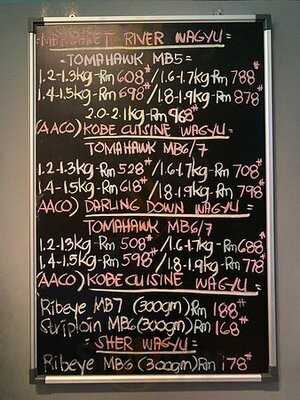 -MARGARET RIVER WAGYU-
-TOMAHAWK MB5=
1.2-1.3kg-Rm 608# / 1.6-1.7kg-Rm 788#
1.4-1.5kg-Rm 698# / 1.8-1.9kg-Rm 878#
2.0-2.1kg-Rm 968#
(AACO) KOBE CUISINE WAGYU=
TOMAHAWK MB6/7
1.2-1.3kg-Rm 528# / 1.6-1.7kg-Rm 708#
1.4-1.5kg-Rm 618# / 1.8-1.9kg-Rm 798#
(AACO) DARLING DOWN WAGYU=
TOMAHAWK MB6/7
1.2-1.3kg-Rm 508# / 1.6-1.7kg-Rm 688#
1.4-1.5kg-Rm 598# / 1.8-1.9kg-Rm 778#
(AACO) KOBE CUISINE WAGYU=
Ribeye MB7 (300gm) Rm 188#
Striploin MB6 (300gm) Rm 168#
=SHER WAGYU=
Ribeye MB6 (300gm) Rm 178#